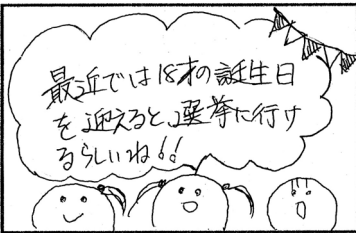 最近では18才の誕生日
を迎えると、選挙に行け
るらしいね!!